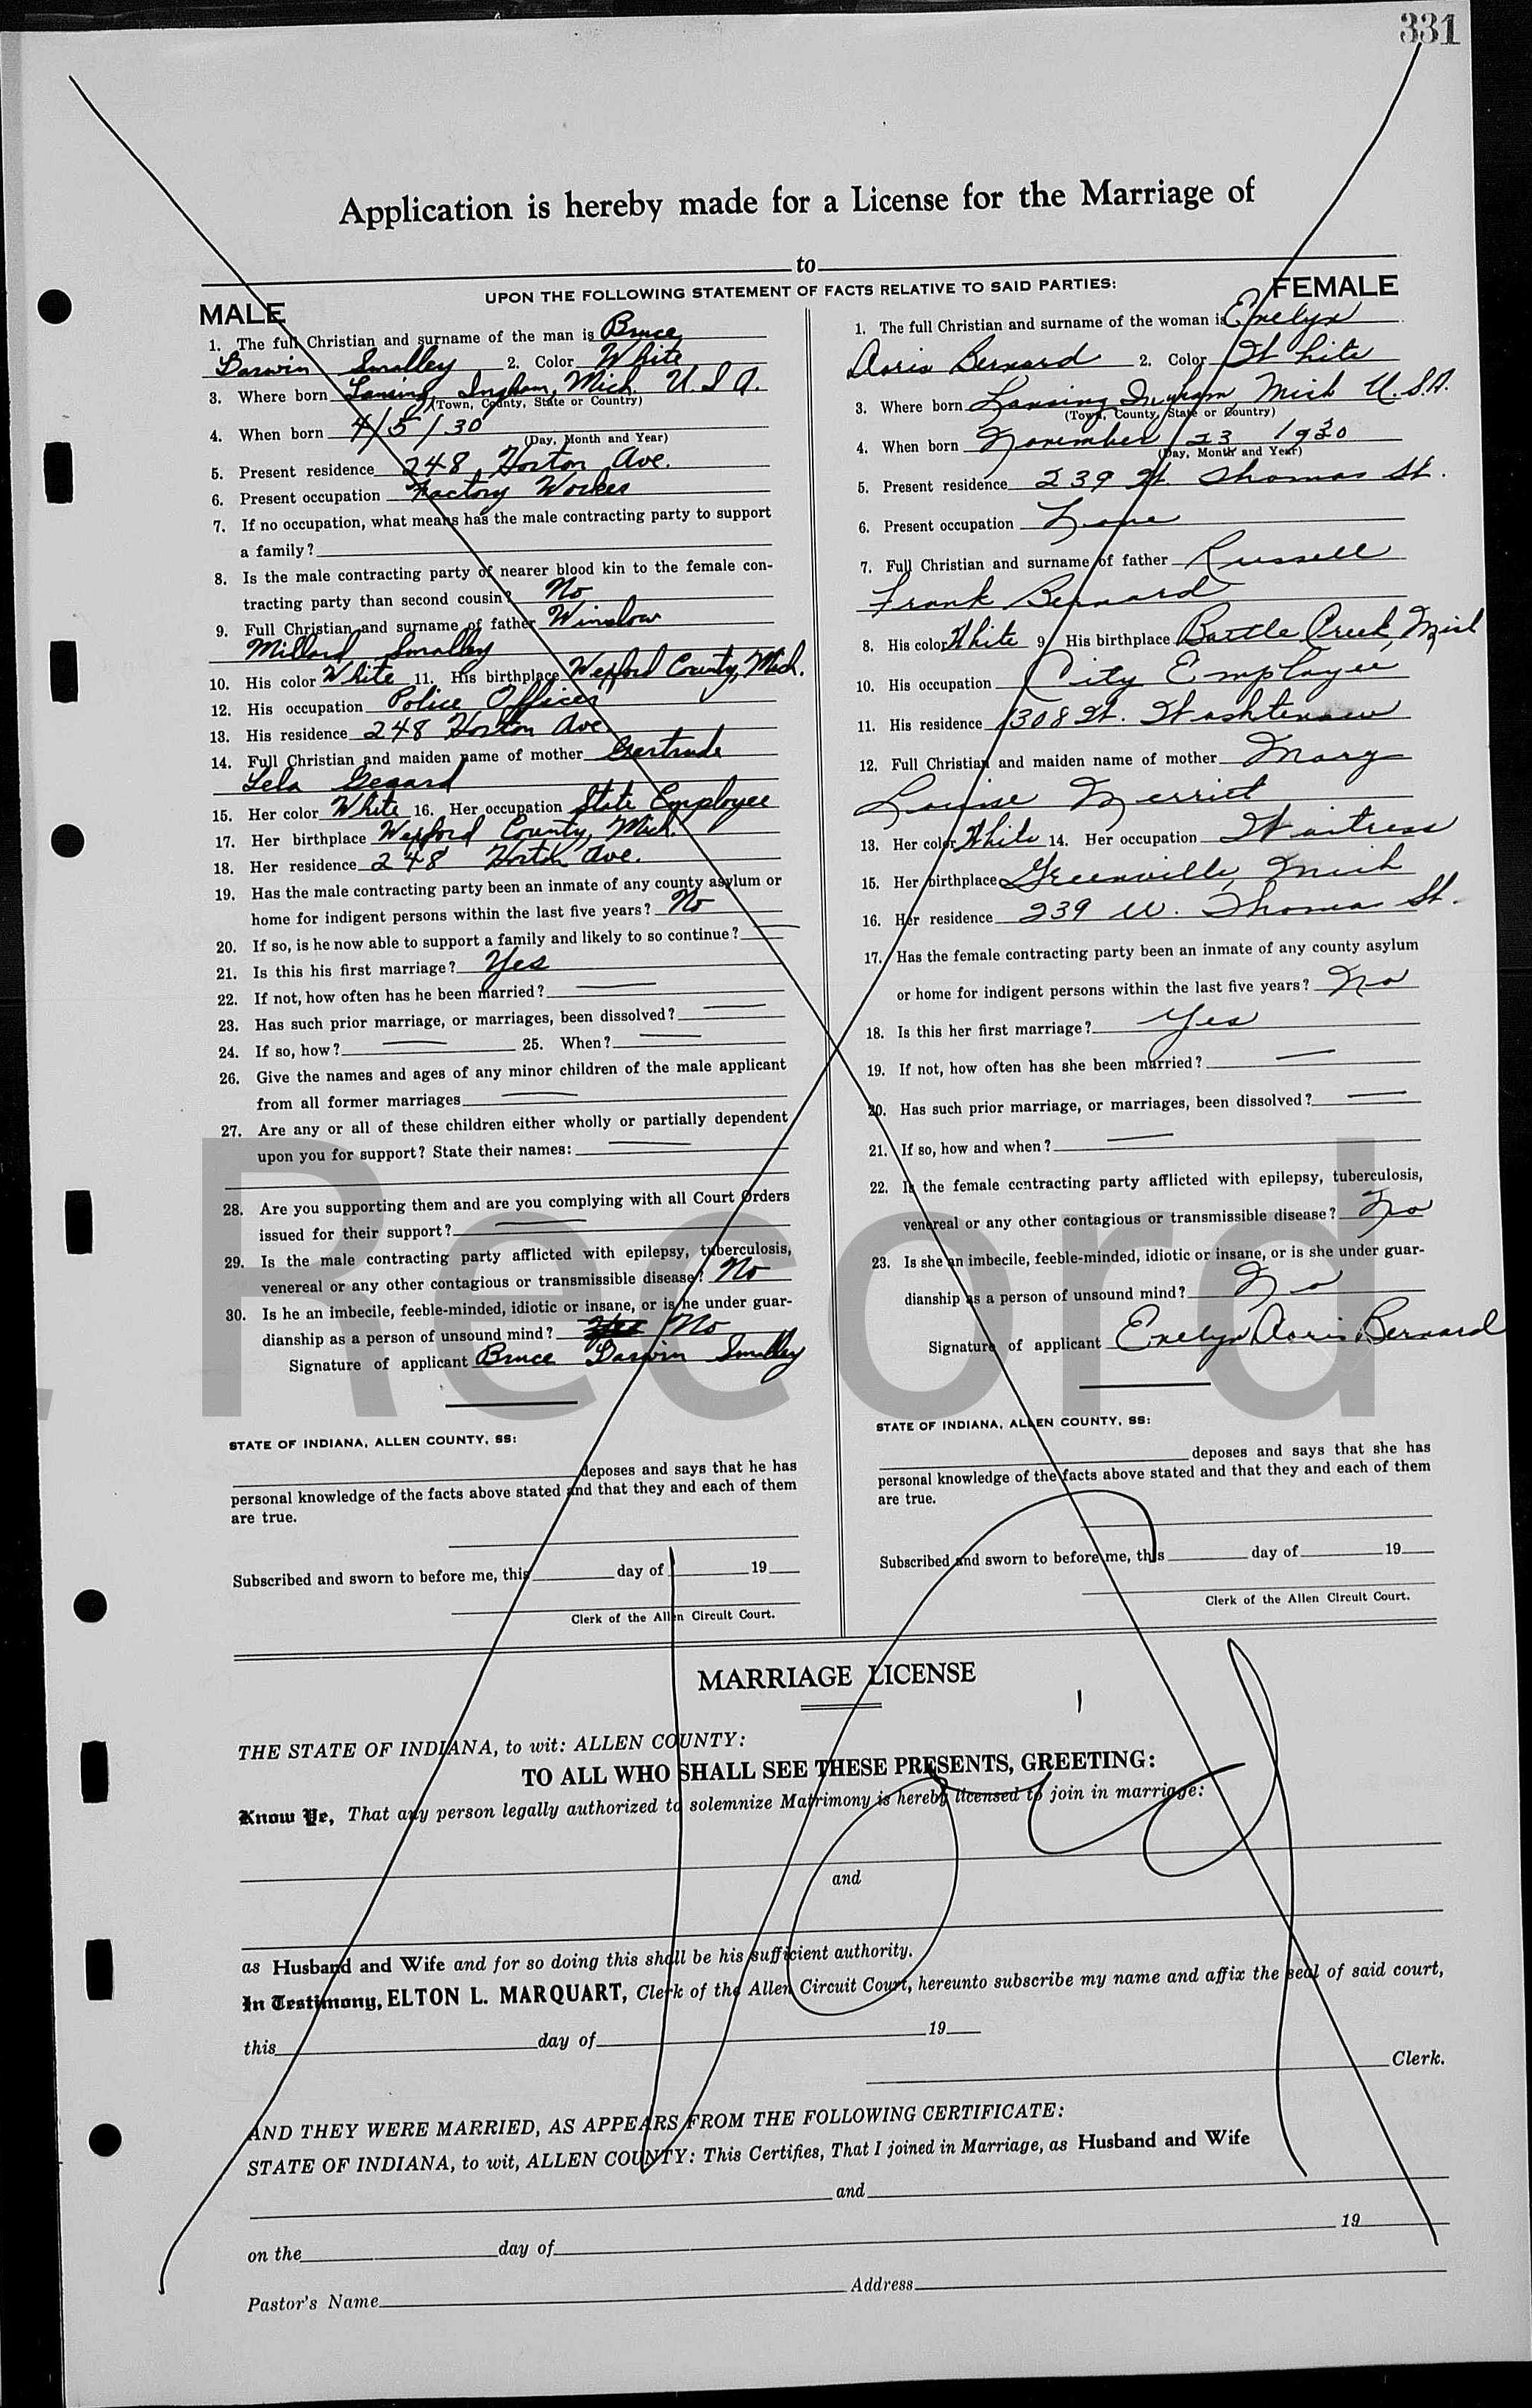 331
Application is hereby made for a License for the Marriage of
to
UPON THE FOLLOWING STATEMENT OF FACTS RELATIVE TO SAID PARTIES:
MALE
1. The full Christian and surname of the man is Bruce
Darwin Smalley 2. Color White
3. Where born Lansing, Ingham, Mich. U.S.A.
(Town, County, State or Country)
4. When born 4/5/30
(Day, Month and Year)
5. Present residence 248 Horton Ave.
6. Present occupation Factory Worker
7. If no occupation, what means has the male contracting party to support
a family?
8. Is the male contracting party of nearer blood kin to the female con-
tracting party than second cousin? No
9. Full Christian and surname of father Winslow
Millard Smalley
10. His color White 11. His birthplace Wexford County, Mich.
12. His occupation Police Officer
13. His residence 248 Horton Ave
14. Full Christian and maiden name of mother Gertrude
Lela
15. Her color White 16. Her occupation State Employee
17. Her birthplace Wexford County, Mich.
18. Her residence 248 Horton Ave.
19. Has the male contracting party been an inmate of any county asylum or
home for indigent persons within the last five years? No
20. If so, is he now able to support a family and likely to so continue? —
21. Is this his first marriage? Yes
22. If not, how often has he been married? —
23. Has such prior marriage, or marriages, been dissolved? —
24. If so, how? — 25. When? —
26. Give the names and ages of any minor children of the male applicant
from all former marriages —
27. Are any or all of these children either wholly or partially dependent
upon you for support? State their names: —
28. Are you supporting them and are you complying with all Court Orders
issued for their support? —
29. Is the male contracting party afflicted with epilepsy, tuberculosis,
venereal or any other contagious or transmissible disease? No
30. Is he an imbecile, feeble-minded, idiotic or insane, or is he under guar-
dianship as a person of unsound mind? Yes No
Signature of applicant Bruce Darwin Smalley
STATE OF INDIANA, ALLEN COUNTY, SS:
deposes and says that he has
personal knowledge of the facts above stated and that they and each of them
are true.
Subscribed and sworn to before me, this day of 19
Clerk of the Allen Circuit Court.
FEMALE
1. The full Christian and surname of the woman is Evelyn
Doris Bernard 2. Color White
3. Where born Lansing Ingham, Mich U.S.A.
(Town, County, State or Country)
4. When born November 23 1930
(Day, Month and Year)
5. Present residence 239 W Thomas St.
6. Present occupation None
7. Full Christian and surname of father Russell
Frank Bernard
8. His color White 9. His birthplace Battle Creek, Mich
10. His occupation City Employee
11. His residence 1308 W. Washtenaw
12. Full Christian and maiden name of mother Mary
Louise Merriet
13. Her color White 14. Her occupation Waitress
15. Her birthplace Greenville, Mich
16. Her residence 239 W. Thomas St.
17. Has the female contracting party been an inmate of any county asylum
or home for indigent persons within the last five years? No
18. Is this her first marriage? Yes
19. If not, how often has she been married? —
20. Has such prior marriage, or marriages, been dissolved? —
21. If so, how and when? —
22. Is the female contracting party afflicted with epilepsy, tuberculosis,
venereal or any other contagious or transmissible disease? No
23. Is she an imbecile, feeble-minded, idiotic or insane, or is she under guar-
dianship as a person of unsound mind? No
Signature of applicant Evelyn Doris Bernard
STATE OF INDIANA, ALLEN COUNTY, SS:
deposes and says that she has
personal knowledge of the facts above stated and that they and each of them
are true.
Subscribed and sworn to before me, this day of 19
Clerk of the Allen Circuit Court.
Record
MARRIAGE LICENSE
THE STATE OF INDIANA, to wit: ALLEN COUNTY:
TO ALL WHO SHALL SEE THESE PRESENTS, GREETING:
Know Ye, That any person legally authorized to solemnize Matrimony is hereby licensed to join in marriage:
and
as Husband and Wife and for so doing this shall be his sufficient authority.
In Testimony, ELTON L. MARQUART, Clerk of the Allen Circuit Court, hereunto subscribe my name and affix the seal of said court,
this day of 19
Clerk.
AND THEY WERE MARRIED, AS APPEARS FROM THE FOLLOWING CERTIFICATE:
STATE OF INDIANA, to wit, ALLEN COUNTY: This Certifies, That I joined in Marriage, as Husband and Wife
and
on the day of 19
Pastor's Name Address